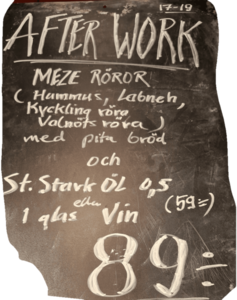 17-19
AFTER WORK
MEZE RÖROR
(Hummus, Labneh,
Kyckling röra
Valnöts röra)
med pita bröd
och
St. Stark Öl 0,5
eller (59:=)
1 glas Vin
89:-